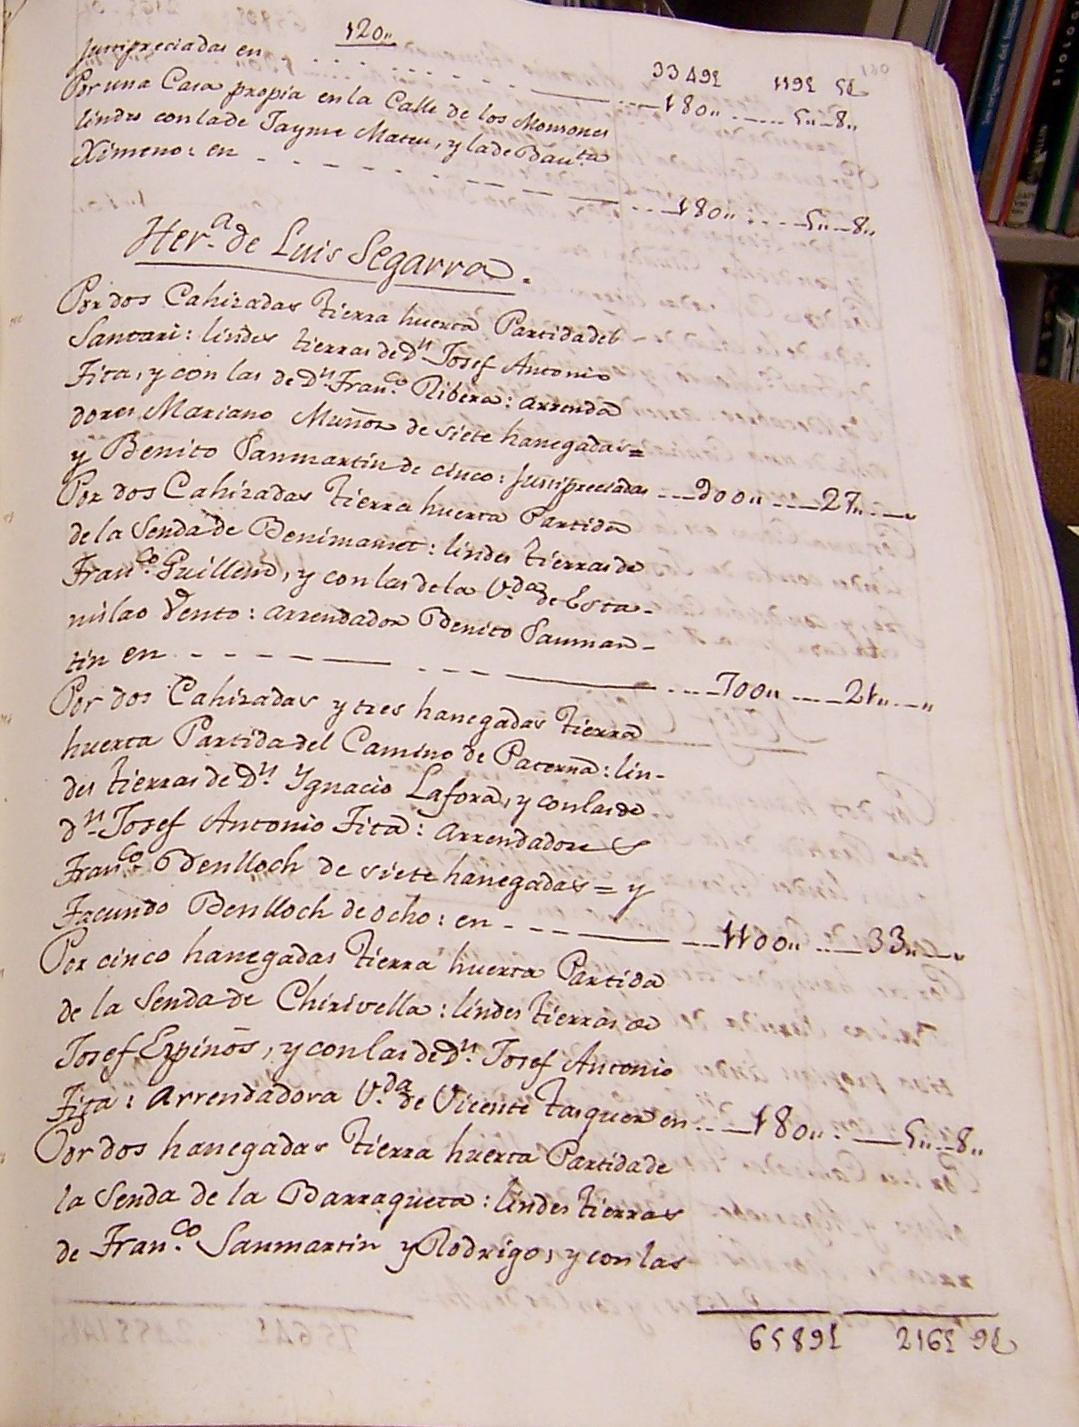 120,,
160
Justipreciadas en - - - - - - 180,, - - 5,, - 8,,
Por una Casa propia en la Calle de los Monsones
lindes con la de Jayme Mateu, y la de Bau.ta
Ximeno: en - - - - - - 180,, - - 5,, - 8,,
Her.a de Luis Segarra.
Por dos Cahizadas tierra huerta Partida del
Santari: lindes tierras de Dn Josef Antonio
Fita, y con las de Dn Fran.co Ribera: arrenda
dores Mariano Muñoz de siete hanegadas=
y Benito Sanmartin de cinco: Justipreciadas - - 900,, - - 27,, - -
Por dos Cahizadas tierra huerta Partida
de la Senda de Benimamet: lindes tierras de
Fran.co Guillem, y con las de la V.da de Esta-
nislao Vento: arrendador Benito Sanmar-
tin en - - - - - - 700,, - - 21,, - -
Por dos Cahizadas y tres hanegadas tierra
huerta Partida del Camino de Paterna: lin-
des tierras de Dn Ygnacio Lafora, y con las de
dn Josef Antonio Fita: arrendadores
Fran.co Benlloch de siete hanegadas = y
Facundo Benlloch de ocho: en - - - - 1100,, - - 33,, - -
Por cinco hanegadas tierra huerta Partida
de la Senda de Chirivella: lindes tierras de
Josef Espinós, y con las de Dn Josef Antonio
Fita: arrendadora V.da de Vicente Tasquer en - - 180,, - - 5,, - 8,,
Por dos hanegadas tierra huerta Partida de
la Senda de la Barraqueta: lindes tierras
de Fran.co Sanmartin y Rodrigo, y con las